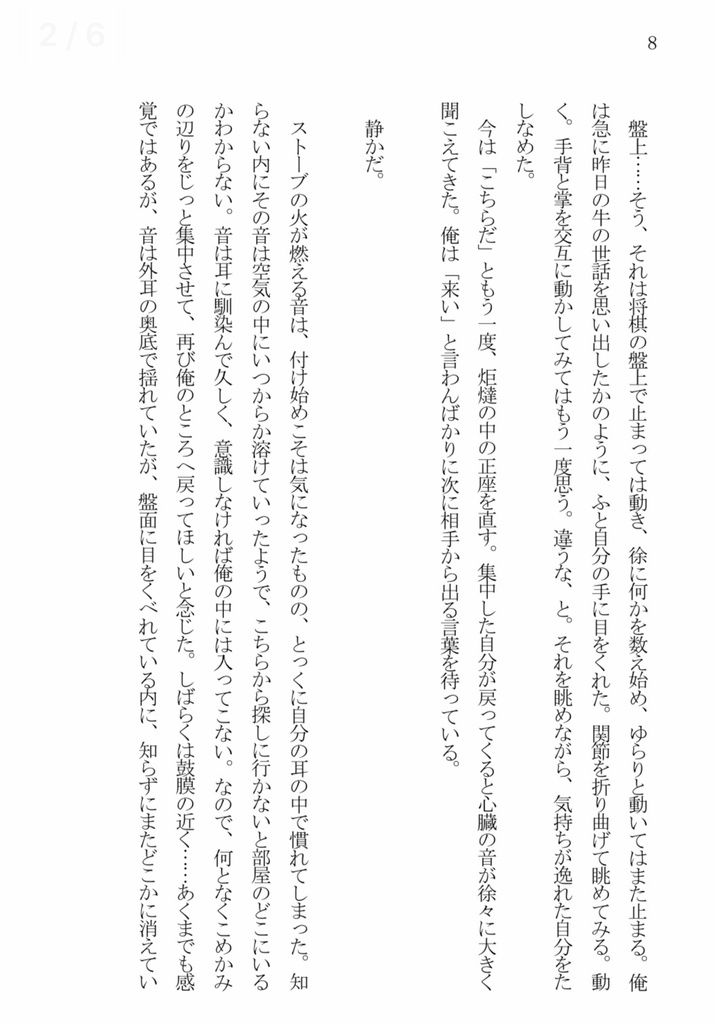 2/6
8
盤上……そう、それは将棋の盤上で止まっては動き、徐に何かを数え始め、ゆらりと動いてはまた止まる。俺
は急に昨日の牛の世話を思い出したかのように、ふと自分の手に目をくれた。関節を折り曲げて眺めてみる。動
く。手背と掌を交互に動かしてみてはもう一度思う。違うな、と。それを眺めながら、気持ちが逸れた自分をた
しなめた。
今は「こちらだ」ともう一度、炬燵の中の正座を直す。集中した自分が戻ってくると心臓の音が徐々に大きく
聞こえてきた。俺は「来い」と言わんばかりに次に相手から出る言葉を待っている。
静かだ。
ストーブの火が燃える音は、付け始めこそは気になったものの、とっくに自分の耳の中で慣れてしまった。知
らない内にその音は空気の中にいつからか溶けていったようで、こちらから探しに行かないと部屋のどこにいる
かわからない。音は耳に馴染んで久しく、意識しなければ俺の中には入ってこない。なので、何となくこめかみ
の辺りをじっと集中させて、再び俺のところへ戻ってほしいと念じた。しばらくは鼓膜の近く……あくまでも感
覚ではあるが、音は外耳の奥底で揺れていたが、盤面に目をくべれている内に、知らずにまたどこかに消えてい